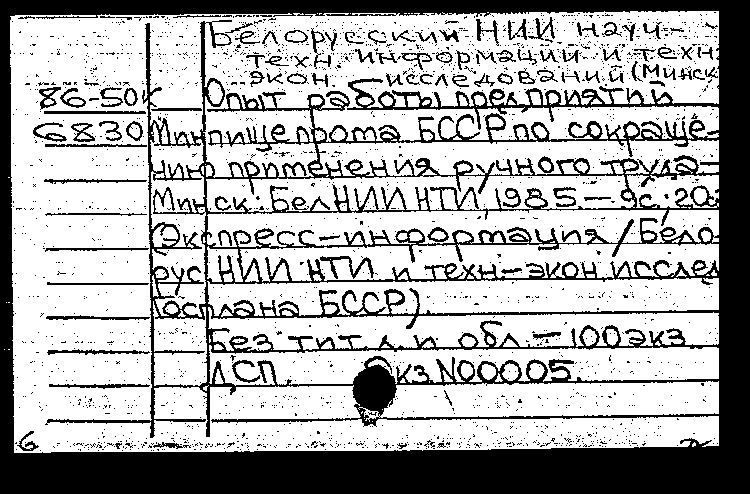 Белорусский НИИ науч-
техн. информации и техн-
экон. исследований (Минск
86-50к Опыт работы предприятий
6830 Минпищепрома БССР по сокраще-
нию применения ручного труда.—
Минск: БелНИИНТИ, 1985.— 9с.; 20
(Экспресс-информация / Бело-
рус. НИИ НТИ и техн-экон. исслед
Госплана БССР).
Без тит. л. и обл. — 100экз
ДСП. Экз. N00005.
6